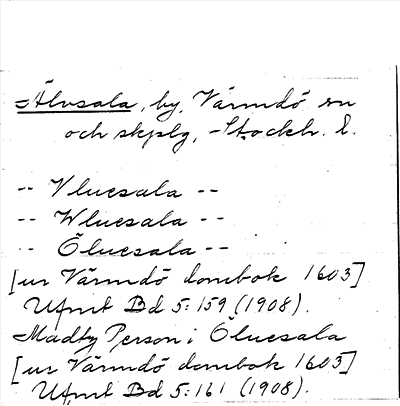 =Älvsala, by, Värmdö sn
och skplg, Stockh. l.
-- Vluesala --
-- Wluesala --
-- Öluesala --
[ur Värmdö dombok 1603]
Ufmt Bd 5:159 (1908).
Madty Person i Öluesala
[ur Värmdö dombok 1603]
Ufmt Bd 5:161 (1908).